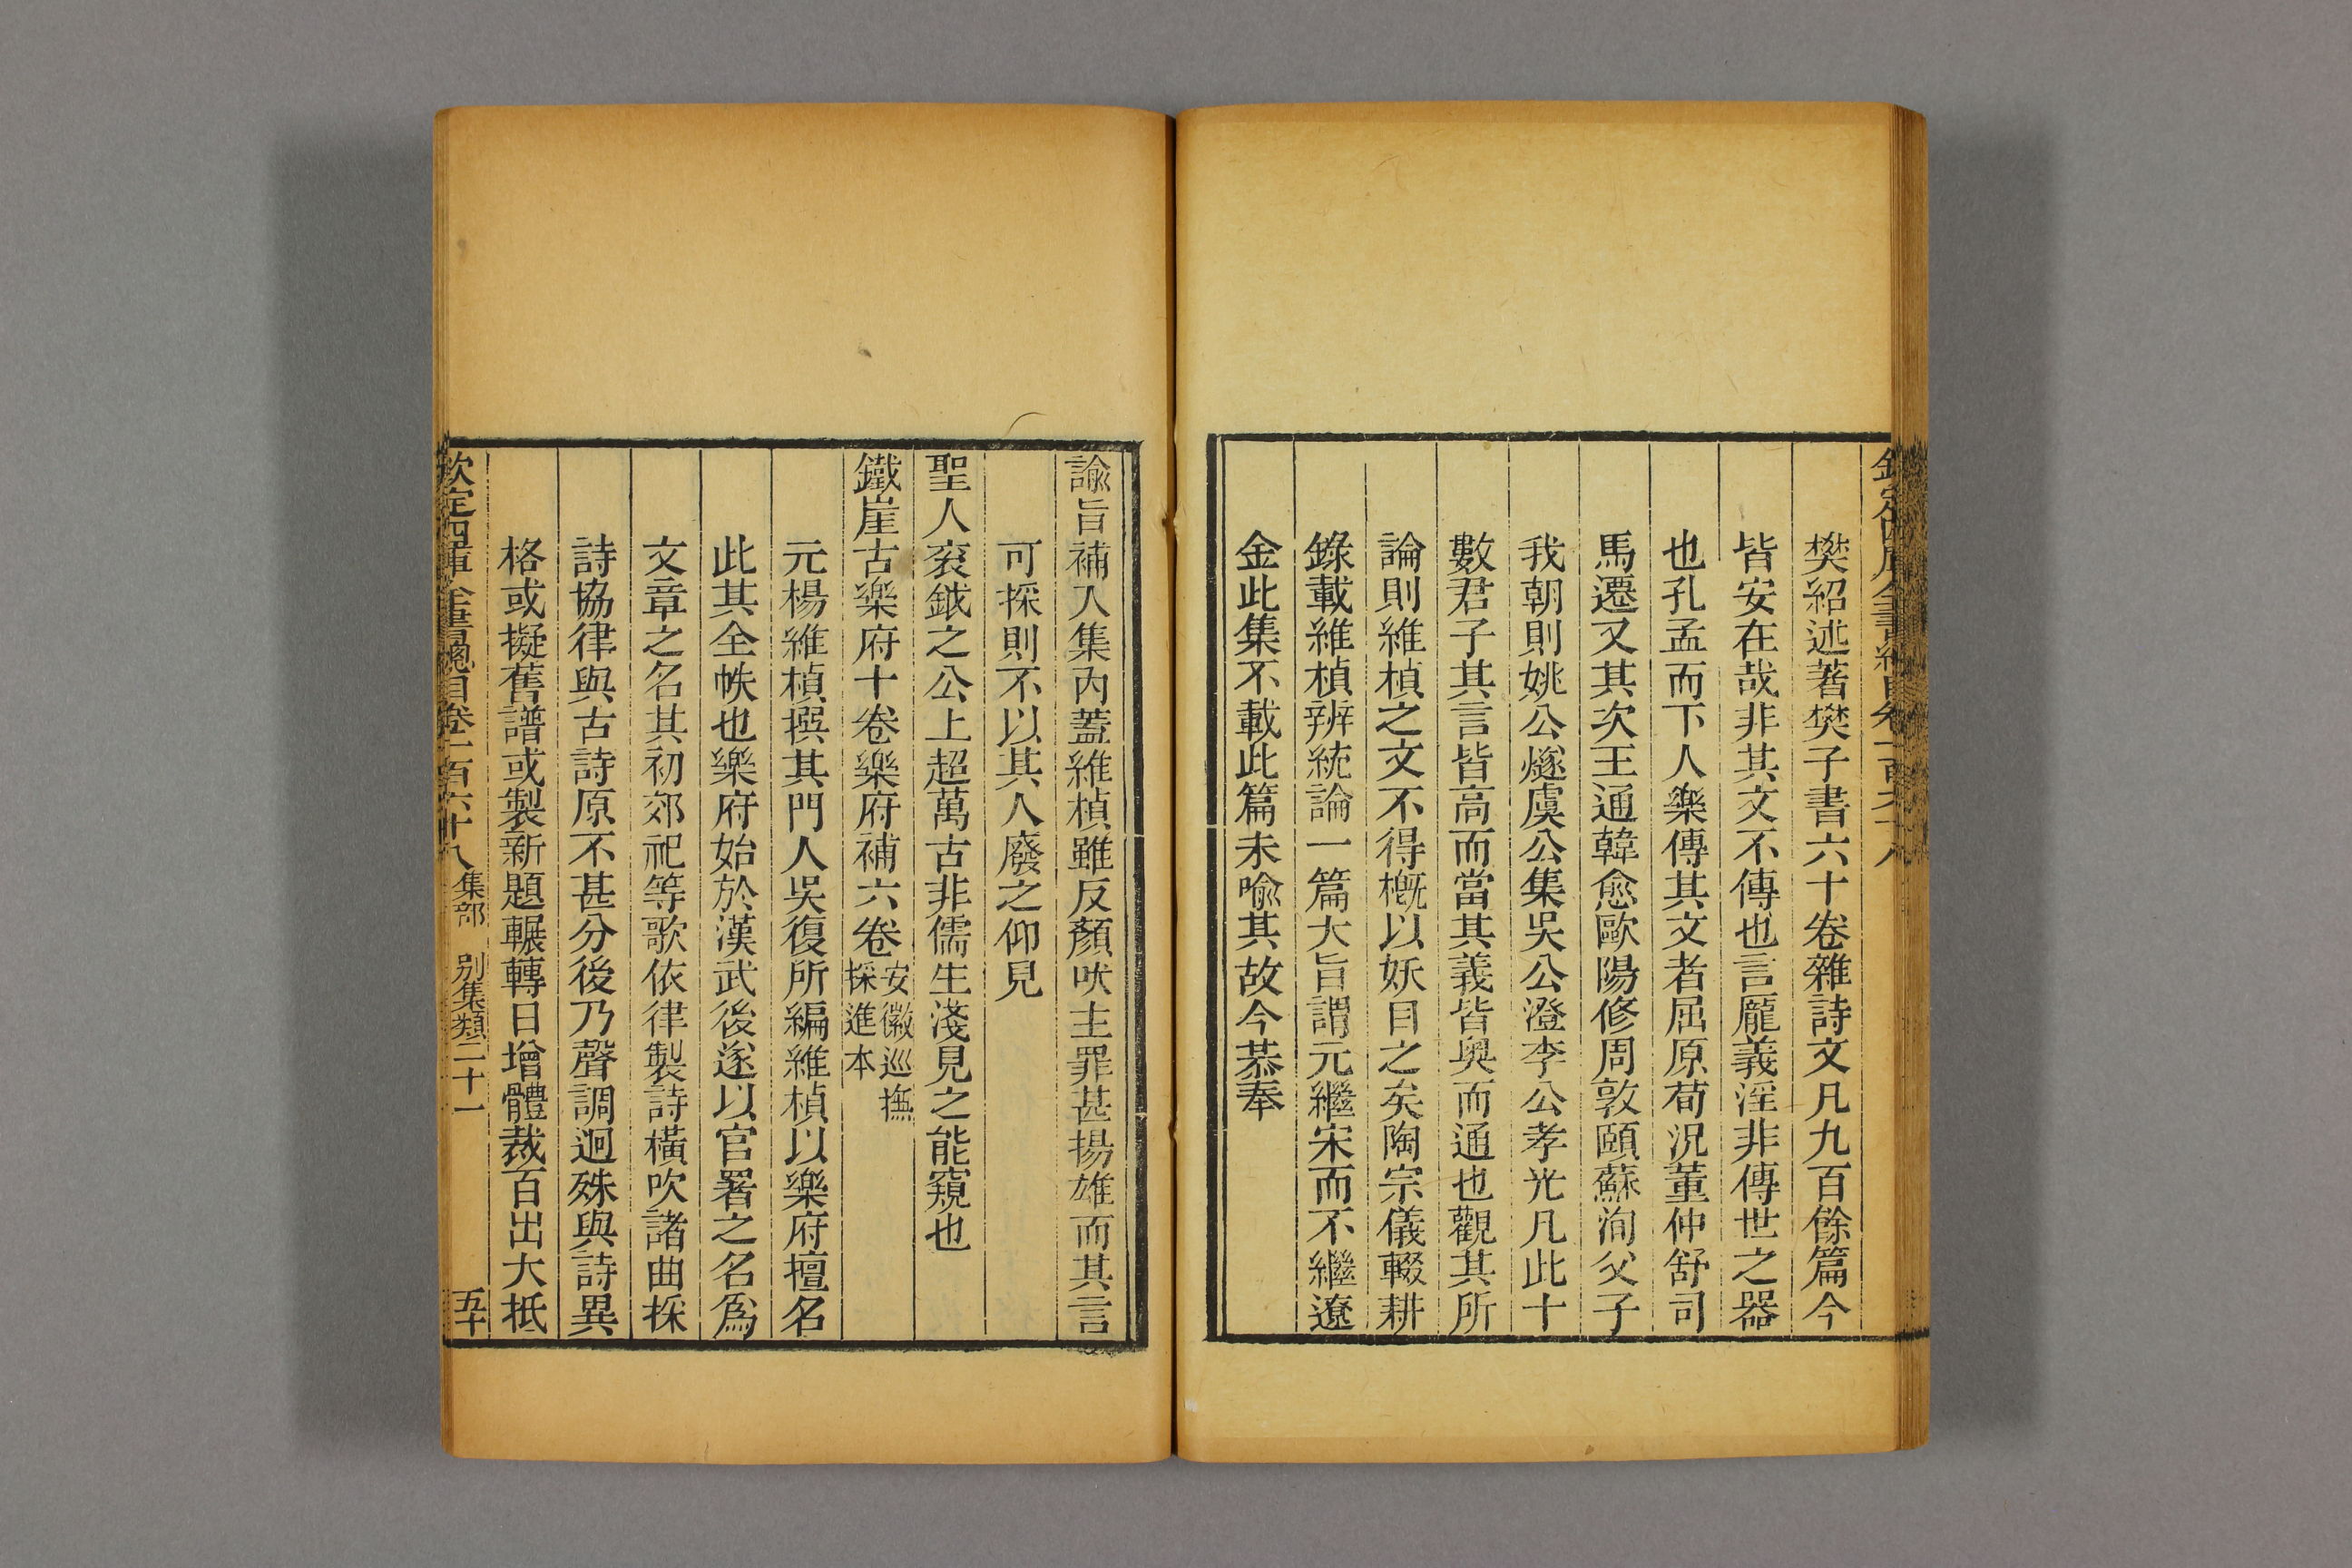 樊紹述著樊子書六十卷雜詩文凡九百餘篇今
皆安在哉非其文不傳也言龐義淫非傳世之器
也孔孟而下人樂傳其文者屈原荀況董仲舒司
馬遷又其次王通韓愈歐陽修周敦頤蘇洵父子
我朝則姚公燧虞公集吳公澄李公孝光凡此十
數君子其言皆高而當其義皆奧而通也觀其所
論則維楨之文不得槪以妖目之矣陶宗儀輟耕
錄載維楨辨統論一篇大旨謂元繼宋而不繼遼
金此集不載此篇未喻其故今恭奉
諭旨補入集內蓋維楨雖反顏吠主罪甚揚雄而其言
可採則不以其人廢之仰見
聖人袞鉞之公上超萬古非儒生淺見之能窺也
鐵崖古樂府十卷樂府補六卷安徽巡撫採進本
元楊維楨撰其門人吳復所編維楨以樂府擅名
此其全帙也樂府始於漢武後遂以官署之名爲
文章之名其初郊祀等歌依律製詩橫吹諸曲採
詩協律與古詩原不甚分後乃聲調迥殊與詩異
格或擬舊譜或製新題輾轉日增體裁百出大抵
欽定四庫全書總目卷一百六十八 集部 別集類二十一 五十